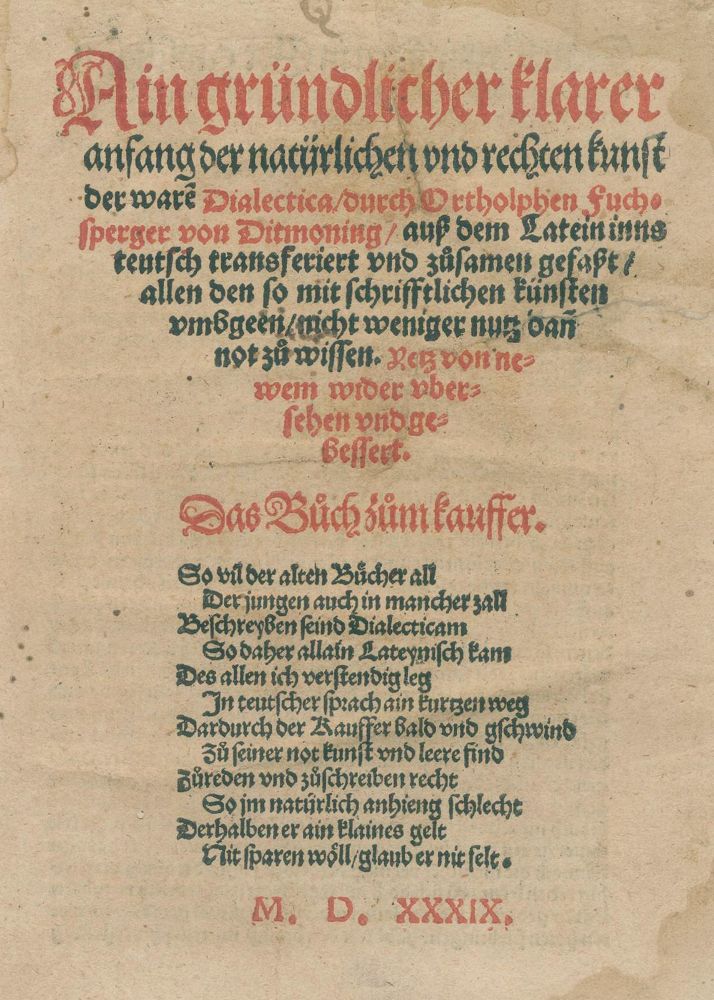 Ain gründlicher klarer
anfang der natürlichen vnd rechten kunst
der warẽ Dialectica/durch Ortholphen Fuch-
sperger von Ditmoning/ auß dem Latein inns
teutsch transferiert vnd zůsamen gefaßt/
allen den so mit schrifftlichen künsten
vmbgeen/nicht weniger nutz dañ
not zů wissen. Yetz von ne-
wem wider vber-
sehen vnd ge-
bessert.
Das Bůch zům kauffer.
So vil der alten Bücher all
Der jungen auch in mancher zall
Beschreyben seind Dialecticam
So daher allain Lateynisch kam
Des allen ich verstendig leg
In teutscher sprach ain kurtzen weg
Dardurch der Kauffer bald vnd gschwind
Zů seiner not kunst vnd leere find
Zůreden vnd zůschreiben recht
So jm natürlich anhieng schlecht
Derhalben er ain klaines gelt
Nit sparen wöll/glaub er nit felt.
M. D. XXXIX.